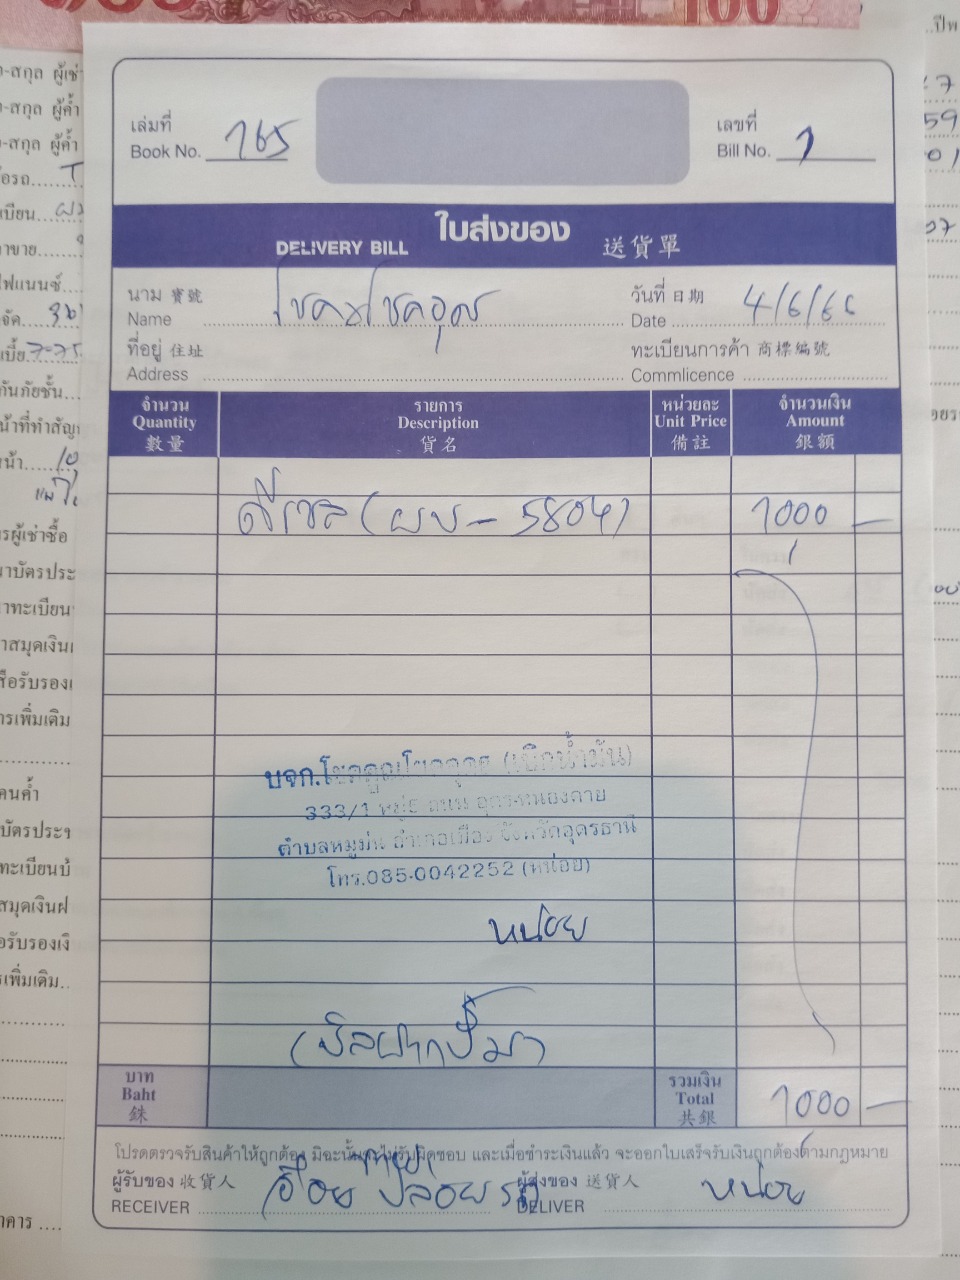 100
เล่มที่
Book No. 165
เลขที่
Bill No. 1
DELIVERY BILL ใบส่งของ 送貨單
นาม 寶號
Name โชคมูลโชคอุดร
วันที่ 日期
Date 4/6/66
ที่อยู่ 住址
Address
ทะเบียนการค้า 商標編號
Commlicence
จำนวน รายการ หน่วยละ จำนวนเงิน
Quantity Description Unit Price Amount
數量 貨名 備註 銀額
ดีเซล (ผบ - 5804) 1000 -
บจก.โชคคูณโชคอุดร (เบิกน้ำมัน)
333/1 หมู่5 ถนน อุดร-หนองคาย
ตำบลหมูม่น อำเภอเมือง จังหวัดอุดรธานี
โทร.085-0042252 (หน่อย)
หน่อย
(บิลฝากปั๊ม)
บาท
Baht
銖
รวมเงิน
Total
共銀
1000 -
โปรดตรวจรับสินค้าให้ถูกต้อง มิฉะนั้นจะไม่รับผิดชอบ และเมื่อชำระเงินแล้ว จะออกใบเสร็จรับเงินถูกต้องตามกฎหมาย
ผู้รับของ 收貨人
RECEIVER
ผู้ส่งของ 送貨人
DELIVER
หน่อย